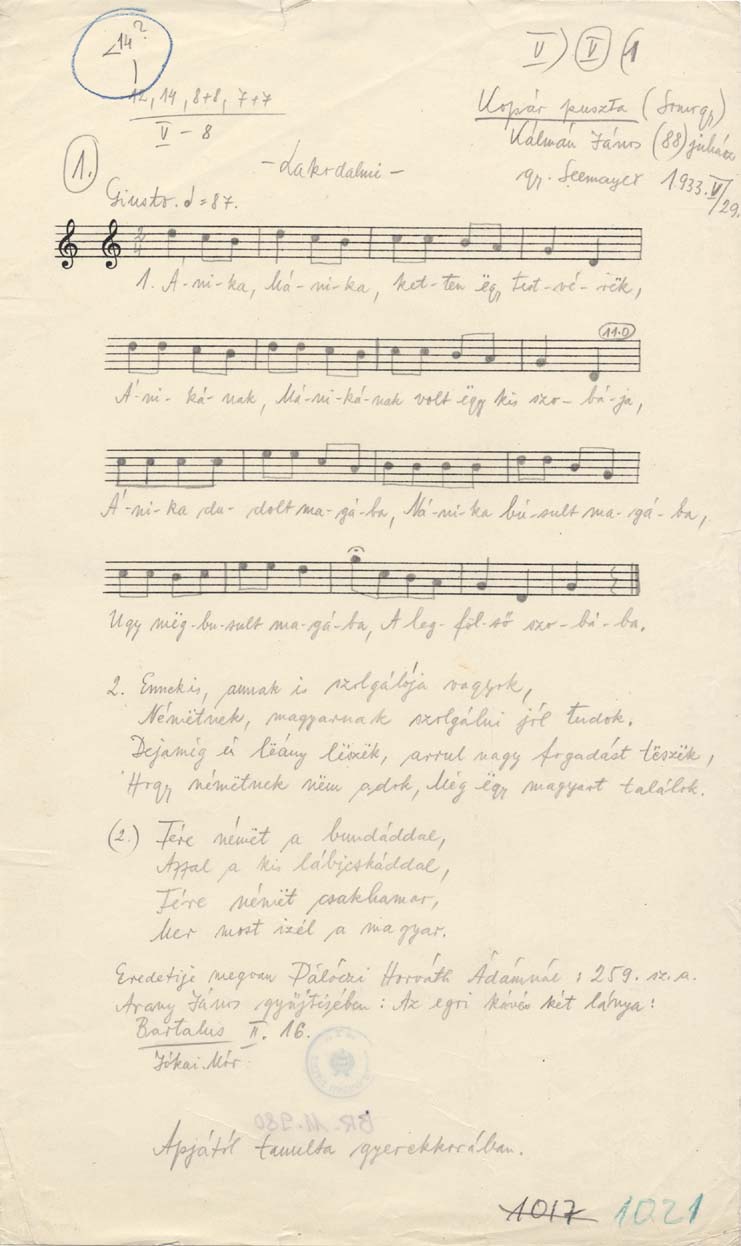 <14?
12, 14, 8+8, 7+7
V - 8
V) V (1
Kopár puszta (Somogy)
Kálmán János (88) juhász
gy. Seemayer 1933. V/29.
1.
- Lakodalmi -
Giusto. d = 87.
2/4
1. A-ni-ka, Má-ni-ka, ket-ten ëgy test-vé-rëk,
11.0
Á-ni-ká-nak, Má-ni-ká-nak volt ëgy kis szo-bá-ja,
Á-ni-ka du-dolt ma-gá-ba, Má-ni-ka bú-sult ma-gá-ba,
Ugy mëg-bu-sult ma-gá-ba, A leg-föl-ső szo-bá-ba.
2. Ennekis, annak is szolgálója vagyok,
Németnek, magyarnak szolgálni jól tudok.
De jamíg én lëány lëszëk, arrul nagy fogadást tëszëk,
Hogy németnek nëm adok, Még ëgy magyart találok.
(2.) Fére német a bundáddal,
Azzal a kis lábicskáddal,
Fére német csakhamar,
Mer most izél a magyar.
Eredetije megvan Pálóczi Horváth Ádámnál : 259. sz. a.
Arany János gyűjtésében : Az egri kávés két lánya :
Bartalus II. 16.
Jókai Mór
BR. 11.980
Apjától tanulta gyerekkorában.
1017 1021